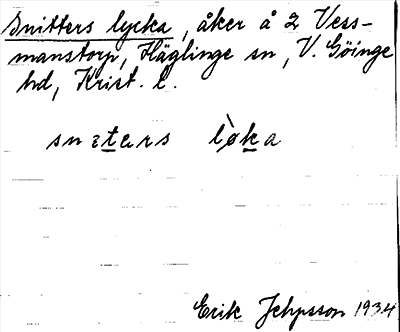 Snitters lycka, åker å 2 Vess-
manstorp, Häglinge sn, V. Göinge
hd, Krist. l.
snɛtɛrs lø̀ka
Erik Jepsson 1934